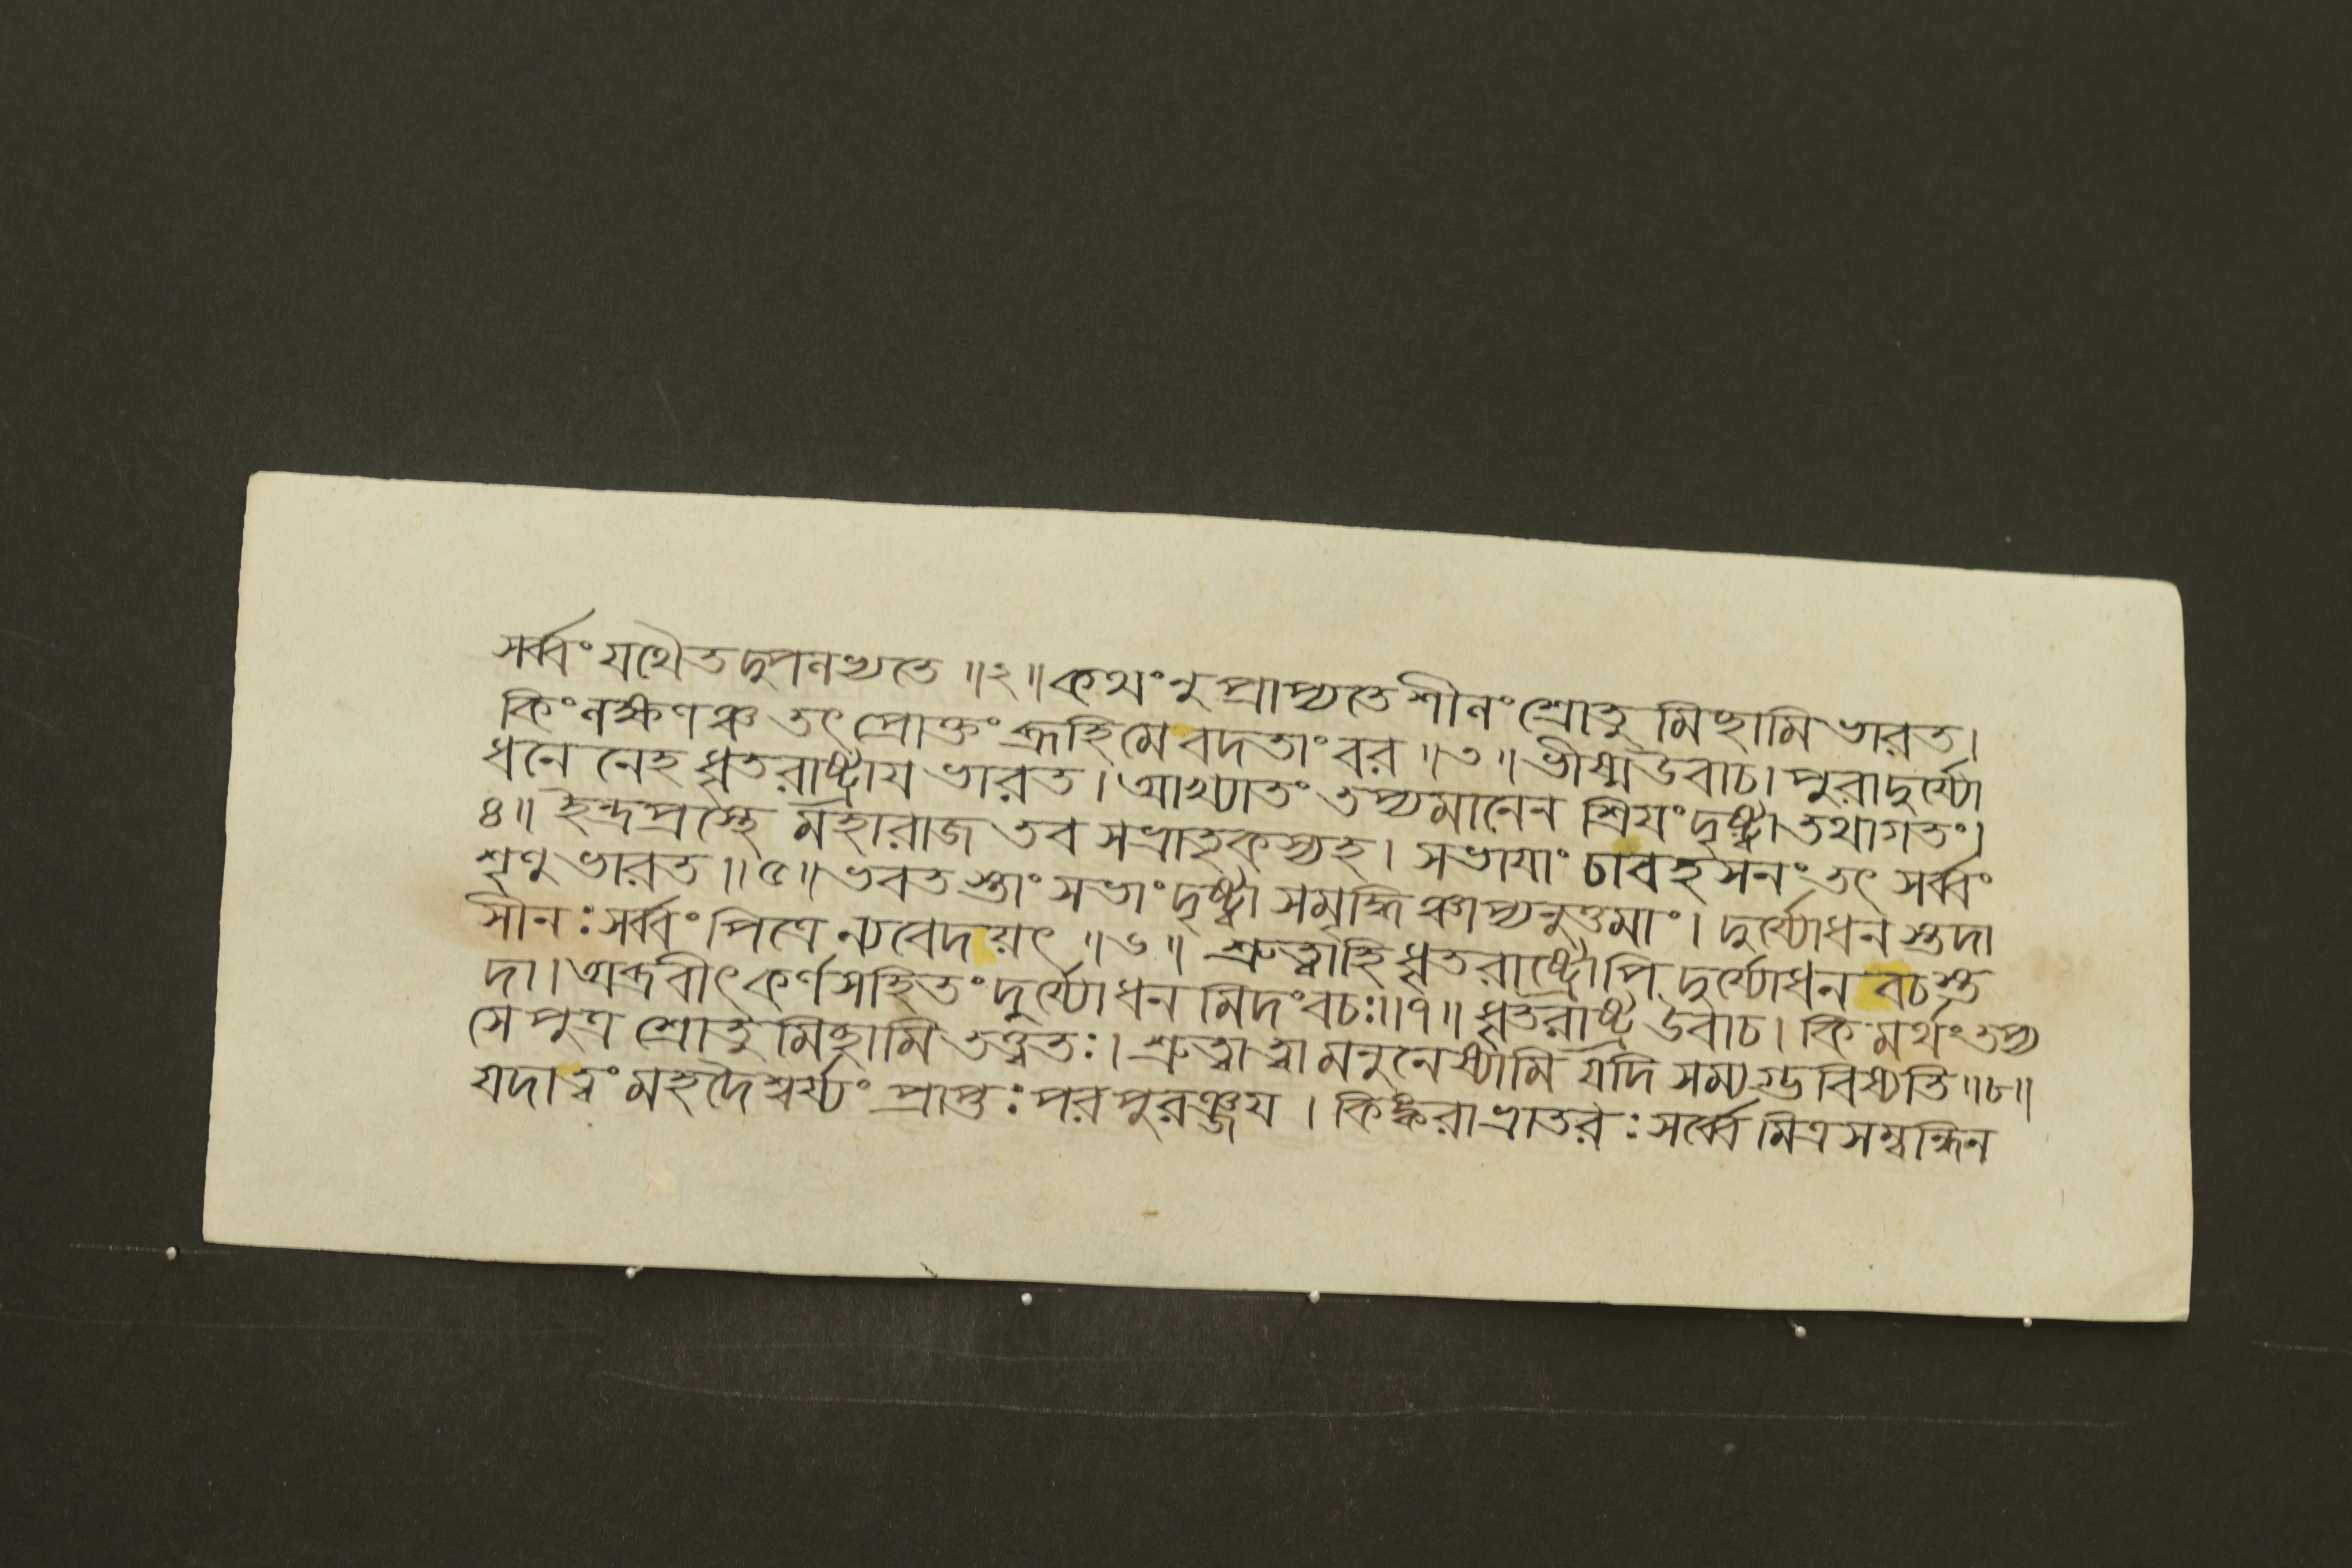 সর্ব্বং যথৈতদুপলভ্যতে ॥২॥ কথং নু প্রাপ্যতে শীলং শ্রোতুমিচ্ছামি ভারত।
কিং লক্ষণঞ্চ তৎ প্রোক্তং ব্রূহি মে বদতাং বর ॥৩॥ ভীষ্ম উবাচ। পুরা দুর্য্যো
ধনেনেহ ধৃতরাষ্ট্রায ভারত। আখ্যাতং তপ্যমানেন শ্রিযং দৃষ্ট্বা তথাগতং।
৪॥ ইন্দ্রপ্রস্থে মহারাজ তব সভ্রাতৃকস্য হ। সভাযাং চাবহসনং তৎ সর্ব্বং
শৃণু ভারত ॥৫॥ ভবতস্তাং সভাং দৃষ্ট্বা সমৃদ্ধিঞ্চাপ্যনুত্তমাং। দুর্য্যোধনস্তদা
সীনঃ সর্ব্বং পিত্রে ন্যবেদয়ৎ ॥৬॥ শ্রুত্বা হি ধৃতরাষ্ট্রোপি দুর্য্যোধন বচস্ত
দা। অব্রবীৎ কর্ণসহিতং দুর্য্যোধনমিদং বচঃ॥৭॥ ধৃতরাষ্ট্র উবাচ। কিমর্থং তপ্য
সে পুত্র শ্রোতুমিচ্ছামি তত্ত্বতঃ। শ্রুত্বা ত্বামনুনেষ্যামি যদি সম্যগ্ভবিষ্যতি ॥৮॥
যদা ত্বং মহদৈশ্বর্য্যং প্রাপ্তঃ পরপুরঞ্জয। কিঙ্করা ভ্রাতরঃ সর্ব্বে মিত্রসম্বন্ধিন